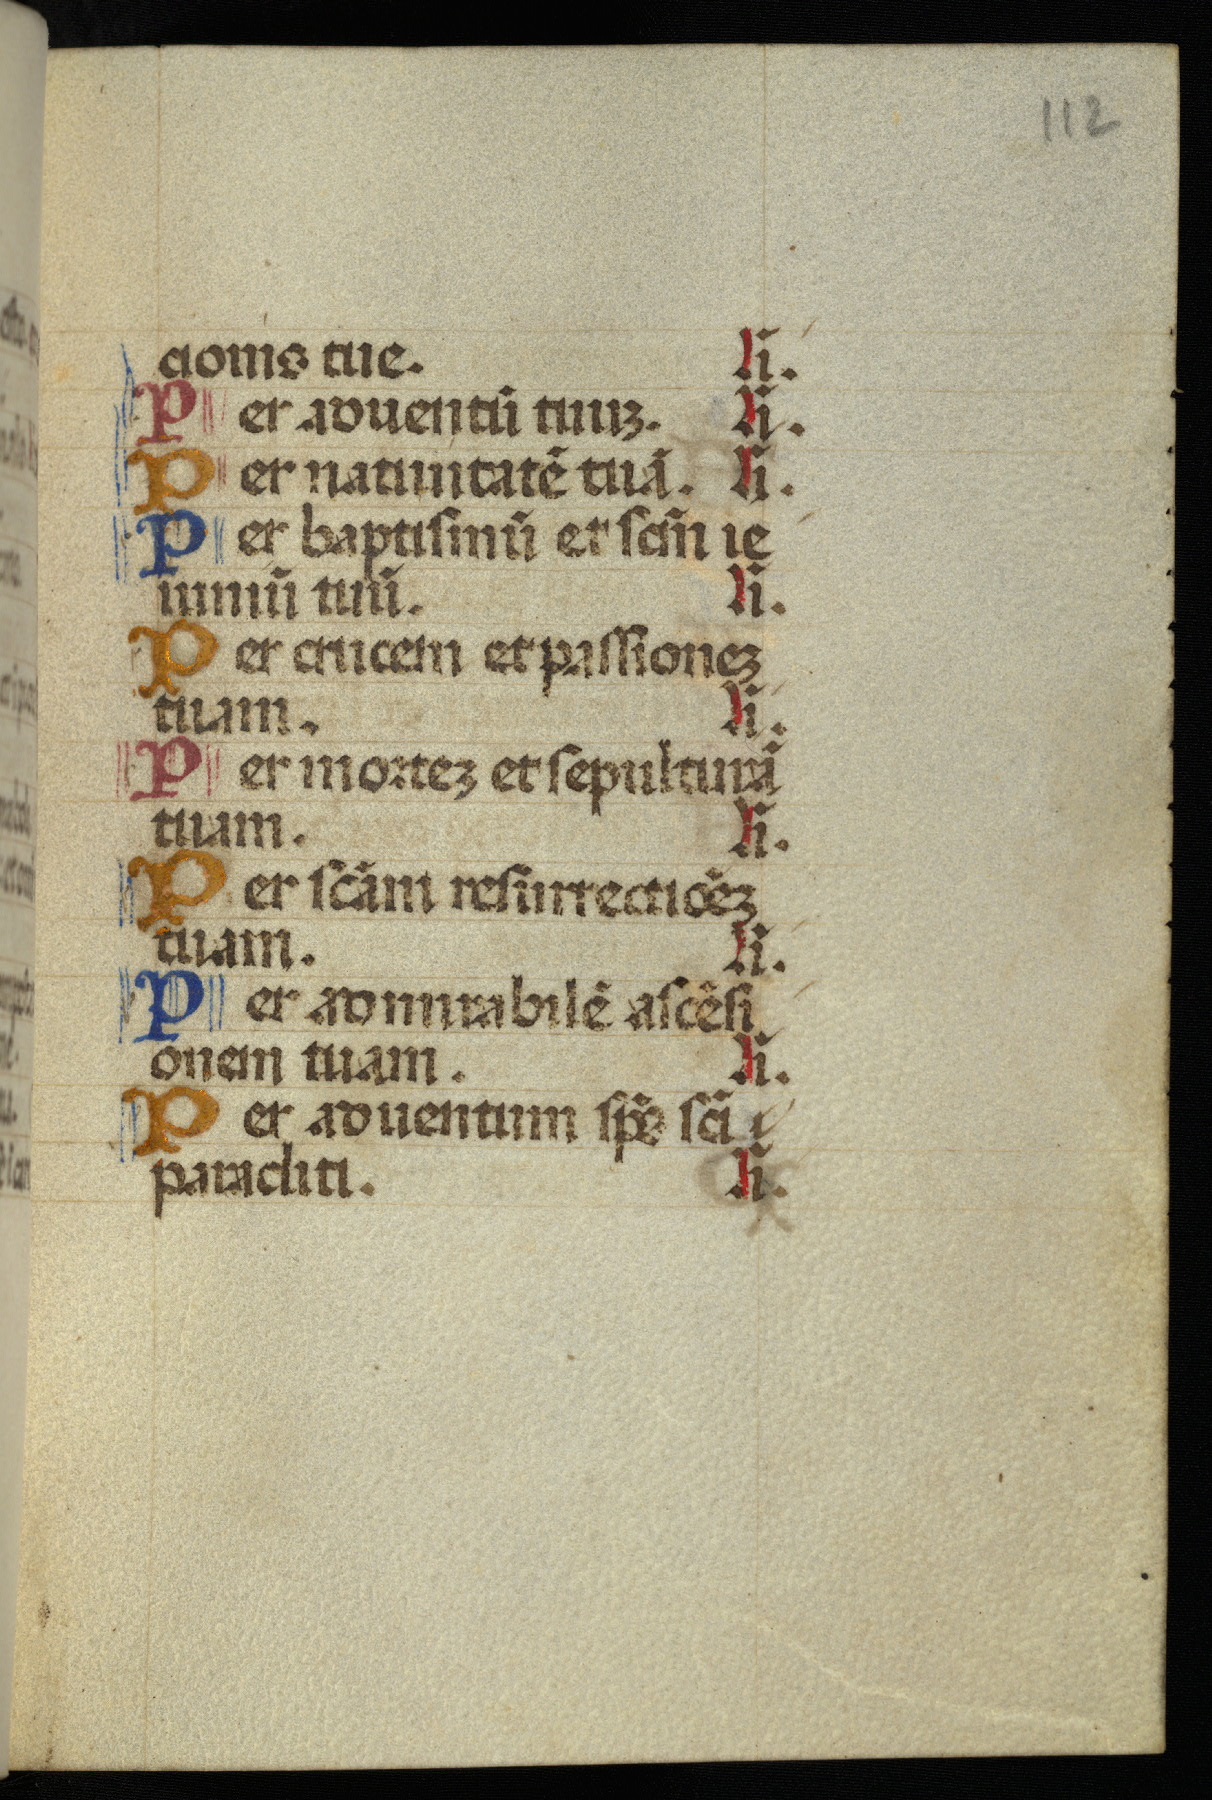 112
cionis tue. li.
Per aduentū tuuꝫ. li.
Per natiuitatē tuā. li.
Per baptismū et scm̄ ie
iuniū tuū. li.
Per crucem et passioneꝫ
tuam. li.
Per morteꝫ et sepulturā
tuam. li.
Per scām resurrectiōeꝫ
tuam. li.
Per admirabilē ascēsi
onem tuam. li.
Per aduentum sp̄s sc̄i
paracliti. li.